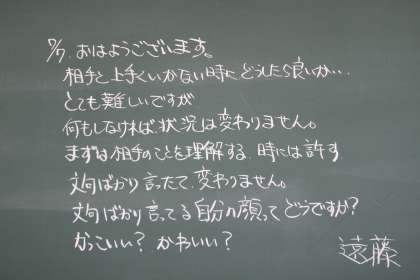 7/7. おはようございます。
相手と上手くいかない時にどうしたら良いか…
とても難しいですが
何もしなければ状況は変わりません。
まずは相手のことを理解する、時には許す
文句ばかり言ったて、変わりません。
文句ばかり言ってる自分の顔ってどうですか?
かっこいい? かわいい?
遠藤